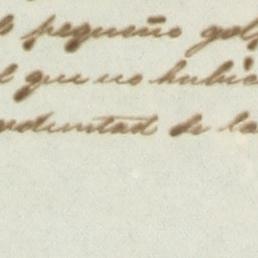 pequeño gol
que no hubie
voluntad de la